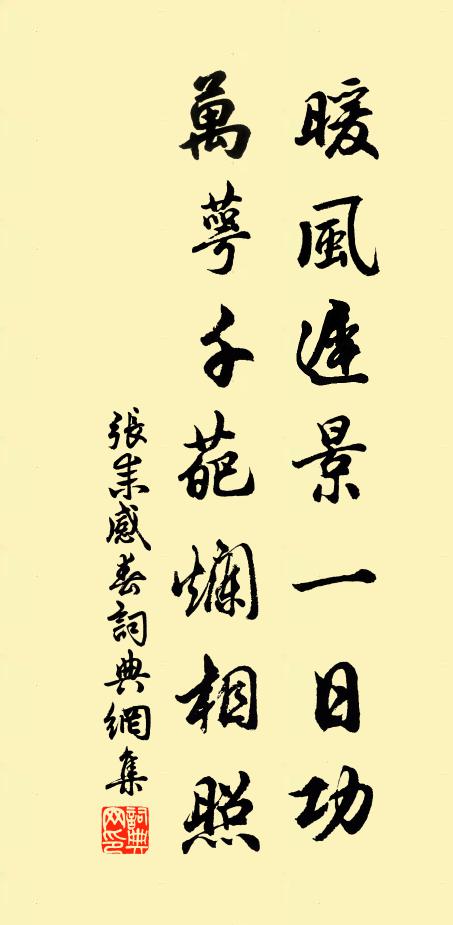 暖風遲景一日功
萬萼千葩爛相照
張耒感春詞典網集
詞典網印